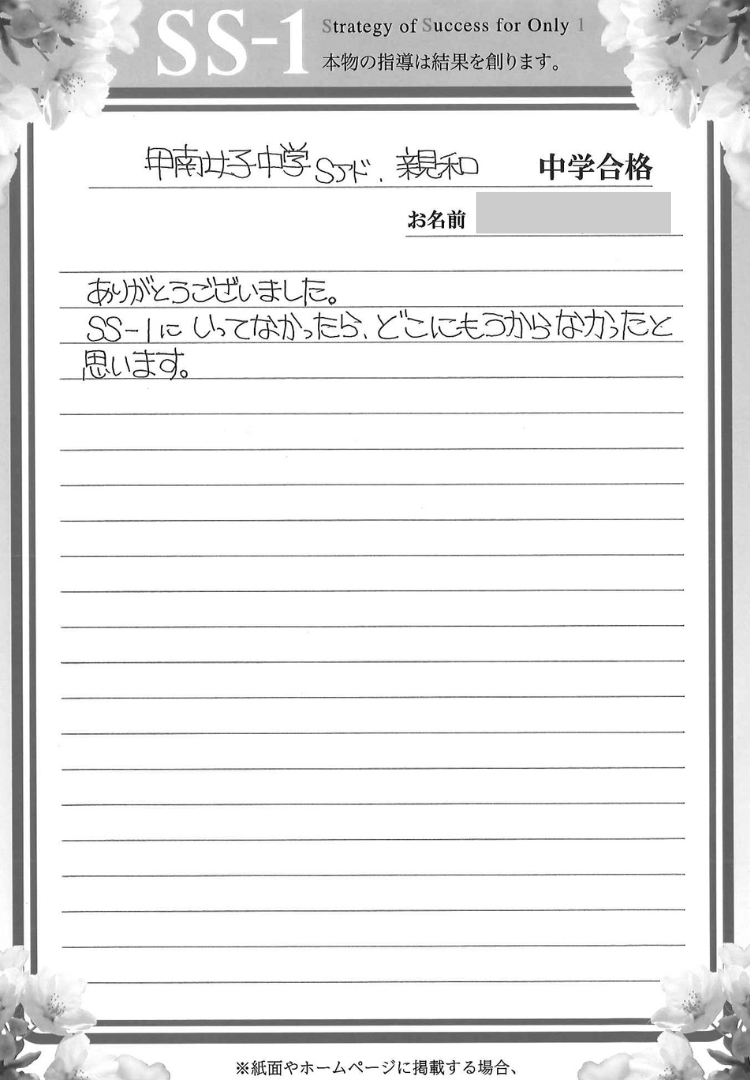 SS-1
Strategy of Success for Only 1
本物の指導は結果を創ります。
甲南女子中学Sアド、親和 中学合格
お名前
ありがとうございました。
SS-1にいってなかったら、どこにもうからなかったと
思います。
※紙面やホームページに掲載する場合、